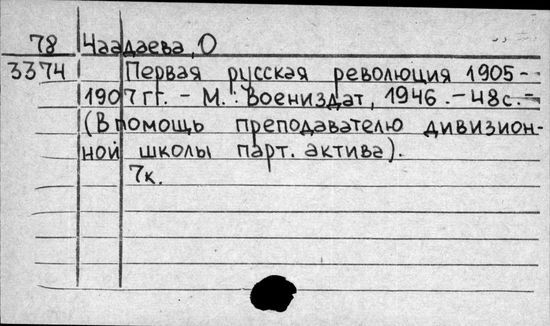 78 Чаадаева, О
3374 Первая русская революция 1905-
1907 гг. - М.: Воениздат, 1946. - 48с. -
(В помощь преподавателю дивизион-
ной школы парт. актива).
7к.